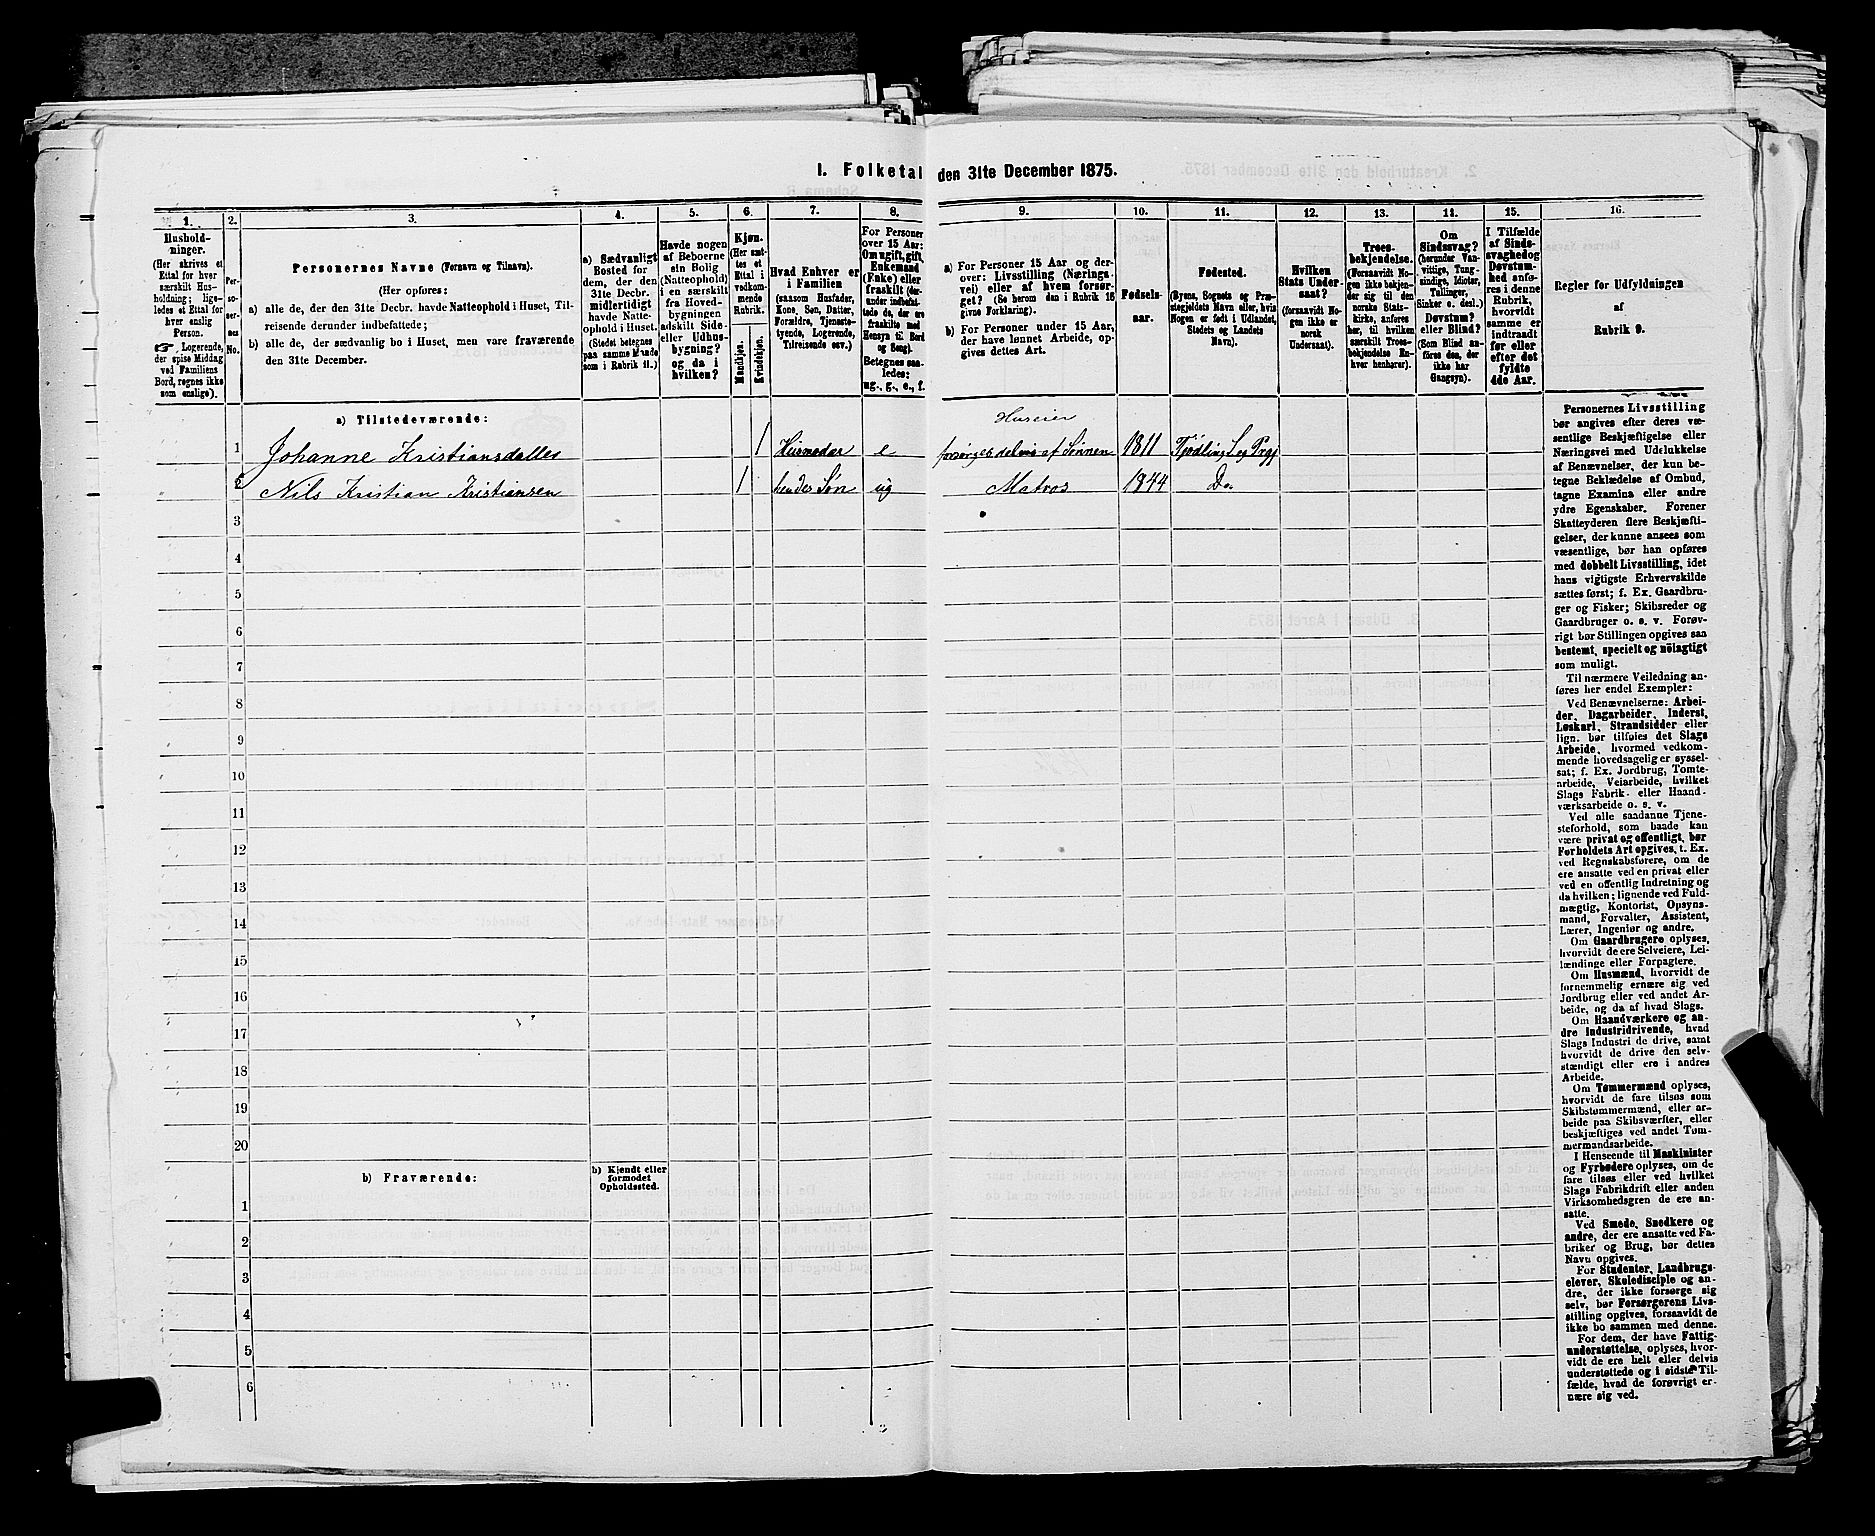 1. Folketal den 31te December 1875.
1. 2. 3. 4. 5. 6. 7. 8. 9. 10. 11. 12. 13. 14. 15. 16.
Husholdninger.
(Her skrives et
Ettal for hver
særskilt Husholdning;
ligeledes et Ettal for
hver enslig
Person.
☞ Logerende,
der spise Middag
ved Familiens
Bord, regnes ikke
som enslige).
Personernes No.
Personernes Navne (Fornavn og Tilnavn).
(Her opføres:
a) alle de, der den 31te Decbr. havde Natteophold i Huset, Tilreisende derunder indbefattede;
b) alle de, der sædvanlig bo i Huset, men vare fraværende
den 31te December.
a) Sædvanligt
Bosted for
dem, der den
31te Decbr.
midlertidigt
havde Natteophold
i Huset.
(Stedet betegnes
paa samme Maade
som i Rubrik 11.)
Havde nogen
af Beboerne
sin Bolig
(Natteophold)
i en særskilt
fra Hovedbygningen
adskilt Side-
eller Udhusbygning?
og da i
hvilken?
Kjøn.
(Her sættes et
Ettal i
vedkommende
Rubrik.
Mandkjøn.
Kvindekjøn.
Hvad Enhver er
i Familien
(saasom Husfader,
Kone, Søn, Datter,
Forældre, Tjenestetyende,
Logerende,
Tilreisende osv.)
For Personer
over 15 Aar:
Om ugift, gift,
Enkemand
(Enke) eller
fraskilt
Betegnes saaledes:
ug., g., e., f.
a) For Personer 15 Aar og derover: Livsstilling (Næringsvei)
eller af hvem forsørget?
(Se herom den i Rubrik 16
givne Forklaring).
b) For Personer under 15 Aar,
der have lønnet Arbeide, opgives dettes Art.
Fødselsaar.
Fødested.
(Byens, Sognets og Præstegjeldets
Navn eller, hvis
Nogen er født i Udlandet,
Stedets og Landets
Navn).
Hvilken
Stats Undersaat?
(forsaavidt Nogen
ikke er
norsk
Undersaat).
Troesbekjendelse.
(Forsaavidt Nogen
ikke bekjender
sig til den
norske Statskirke,
anføres
her, til hvilken
særskilt Troesbekjendelse
Enhver henhører).
Om
Sindssvag?
(herunder Vanvittige,
Tungsindige, Idioter,
Tullinger,
Sinker o. desl.)
Døvstum?
eller Blind?
(Som Blind anføres
den, der
ikke har
Gangsyn).
I Tilfælde
af Sindssvaghed og
Døvstumhed
anføres i denne
Rubrik,
hvorvidt
samme er
indtraadt
før eller
efter det
fyldte
4de Aar.
Regler for Udfyldningen
af
Rubrik 9.
a) Tilstedeværende:
Huseier
1 Johanne Kristiansdatter 1 Husmoder e forsørges delvis af Sønnen 1811 Tjødling
2 Nils Kristian Kristiansen 1 hendes Søn ug Matros 1844 Do.
3
4
5
6
7
8
9
10
11
12
13
14
15
16
17
18
19
20
b) Fraværende: b) Kjendt eller
formodet
Opholdssted.
1
2
3
4
5
6
Personernes Livsstilling
bør angives efter deres væsentlige
Beskjæftigelse eller
Næringsvei med Udelukkelse
af Benævnelser, der kun betegne
Beklædelse af Ombud,
tagne Examina eller andre
ydre Egenskaber. Forener
Skatteyderen flere Beskjæftigelser,
der kunne ansees som
væsentlige, bør han opføres
med dobbelt Livsstilling, idet
hans vigtigste Erhvervskilde
sættes først; f. Ex. Gaardbruger
og Fisker; Skibsreder og
Gaardbruger o. s. v. Forøvrigt
bør Stillingen opgives saa
bestemt, specielt og nøiagtigt
som muligt.
Til nærmere Veiledning anføres
her endel Exempler:
Ved Benævnelserne: Arbeider,
Dagarbeider, Inderst,
Løskarl, Strandsidder eller
lign. bør tilføies det Slags
Arbeide, hvormed vedkommende
hovedsagelig er sysselsat;
f. Ex. Jordbrug, Tomtearbeide,
Veiarbeide, hvilket
Slags Fabrik- eller Haandværksarbeide
o. s. v.
Ved alle saadanne Tjenesteforhold,
som baade kan
være privat og offentligt, bør
Forholdets Art opgives, t. Ex.
ved Regnskabsførere, om de
ere ansatte ved en privat eller
ved en offentlig Indretning og
da hvilken; lignende ved Fuldmægtig,
Kontorist, Opsynsmand,
Forvalter, Assistent,
Lærer, Ingeniør og andre.
Om Gaardbrugere oplyses,
hvorvidt de ere Selveiere, Leilændinge
eller Forpagtere.
Om Husmænd, hvorvidt de
fornemmelig ernære sig ved
Jordbrug eller ved andet Arbeide,
og da af hvad Slags.
Om Haandværkere og andre
Industridrivende, hvad
Slags Industri de drive, samt
hvorvidt de drive den selvstændigt
eller ere i andres
Arbeide.
Om Tømmermænd oplyses,
hvorvidt de fare tilsøs som
Skibstømmermænd, eller arbeide
paa Skibsværfter, eller
beskjæftiges ved andet Tømmermandsarbeide.
I Henseende til Maskinister
og Fyrbødere oplyses, om de
fare tilsøs eller ved hvilket
Slags Fabrikdrift eller anden
Virksomhedsgren de ere ansatte.
Ved Smede, Snedkere og
andre, der ere ansatte ved Fabriker
og Brug, bør dettes
Navn opgives.
For Studenter, Landbrugselever,
Skoledisciple og andre,
der ikke forsørge sig
selv, bør Forsørgerens Livsstilling
opgives, forsaavidt de
ikke bo sammen med denne.
For dem, der have Fattigunderstøttelse,
oplyses, hvorvidt
de ere helt eller delvis
understøttede og i sidste Tilfælde,
hvad de forøvrigt ernære
sig ved.